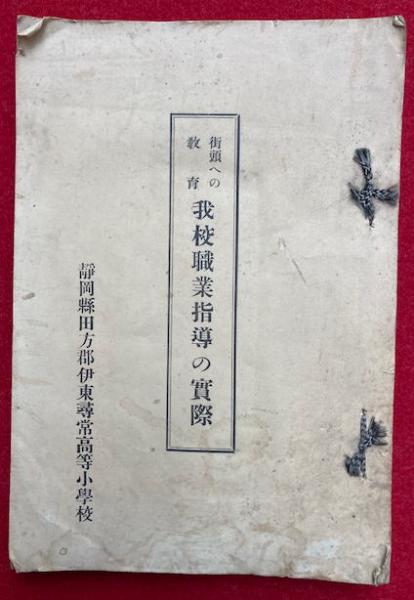 街頭への
教育
我校職業指導の實際
靜岡縣田方郡伊東尋常高等小學校